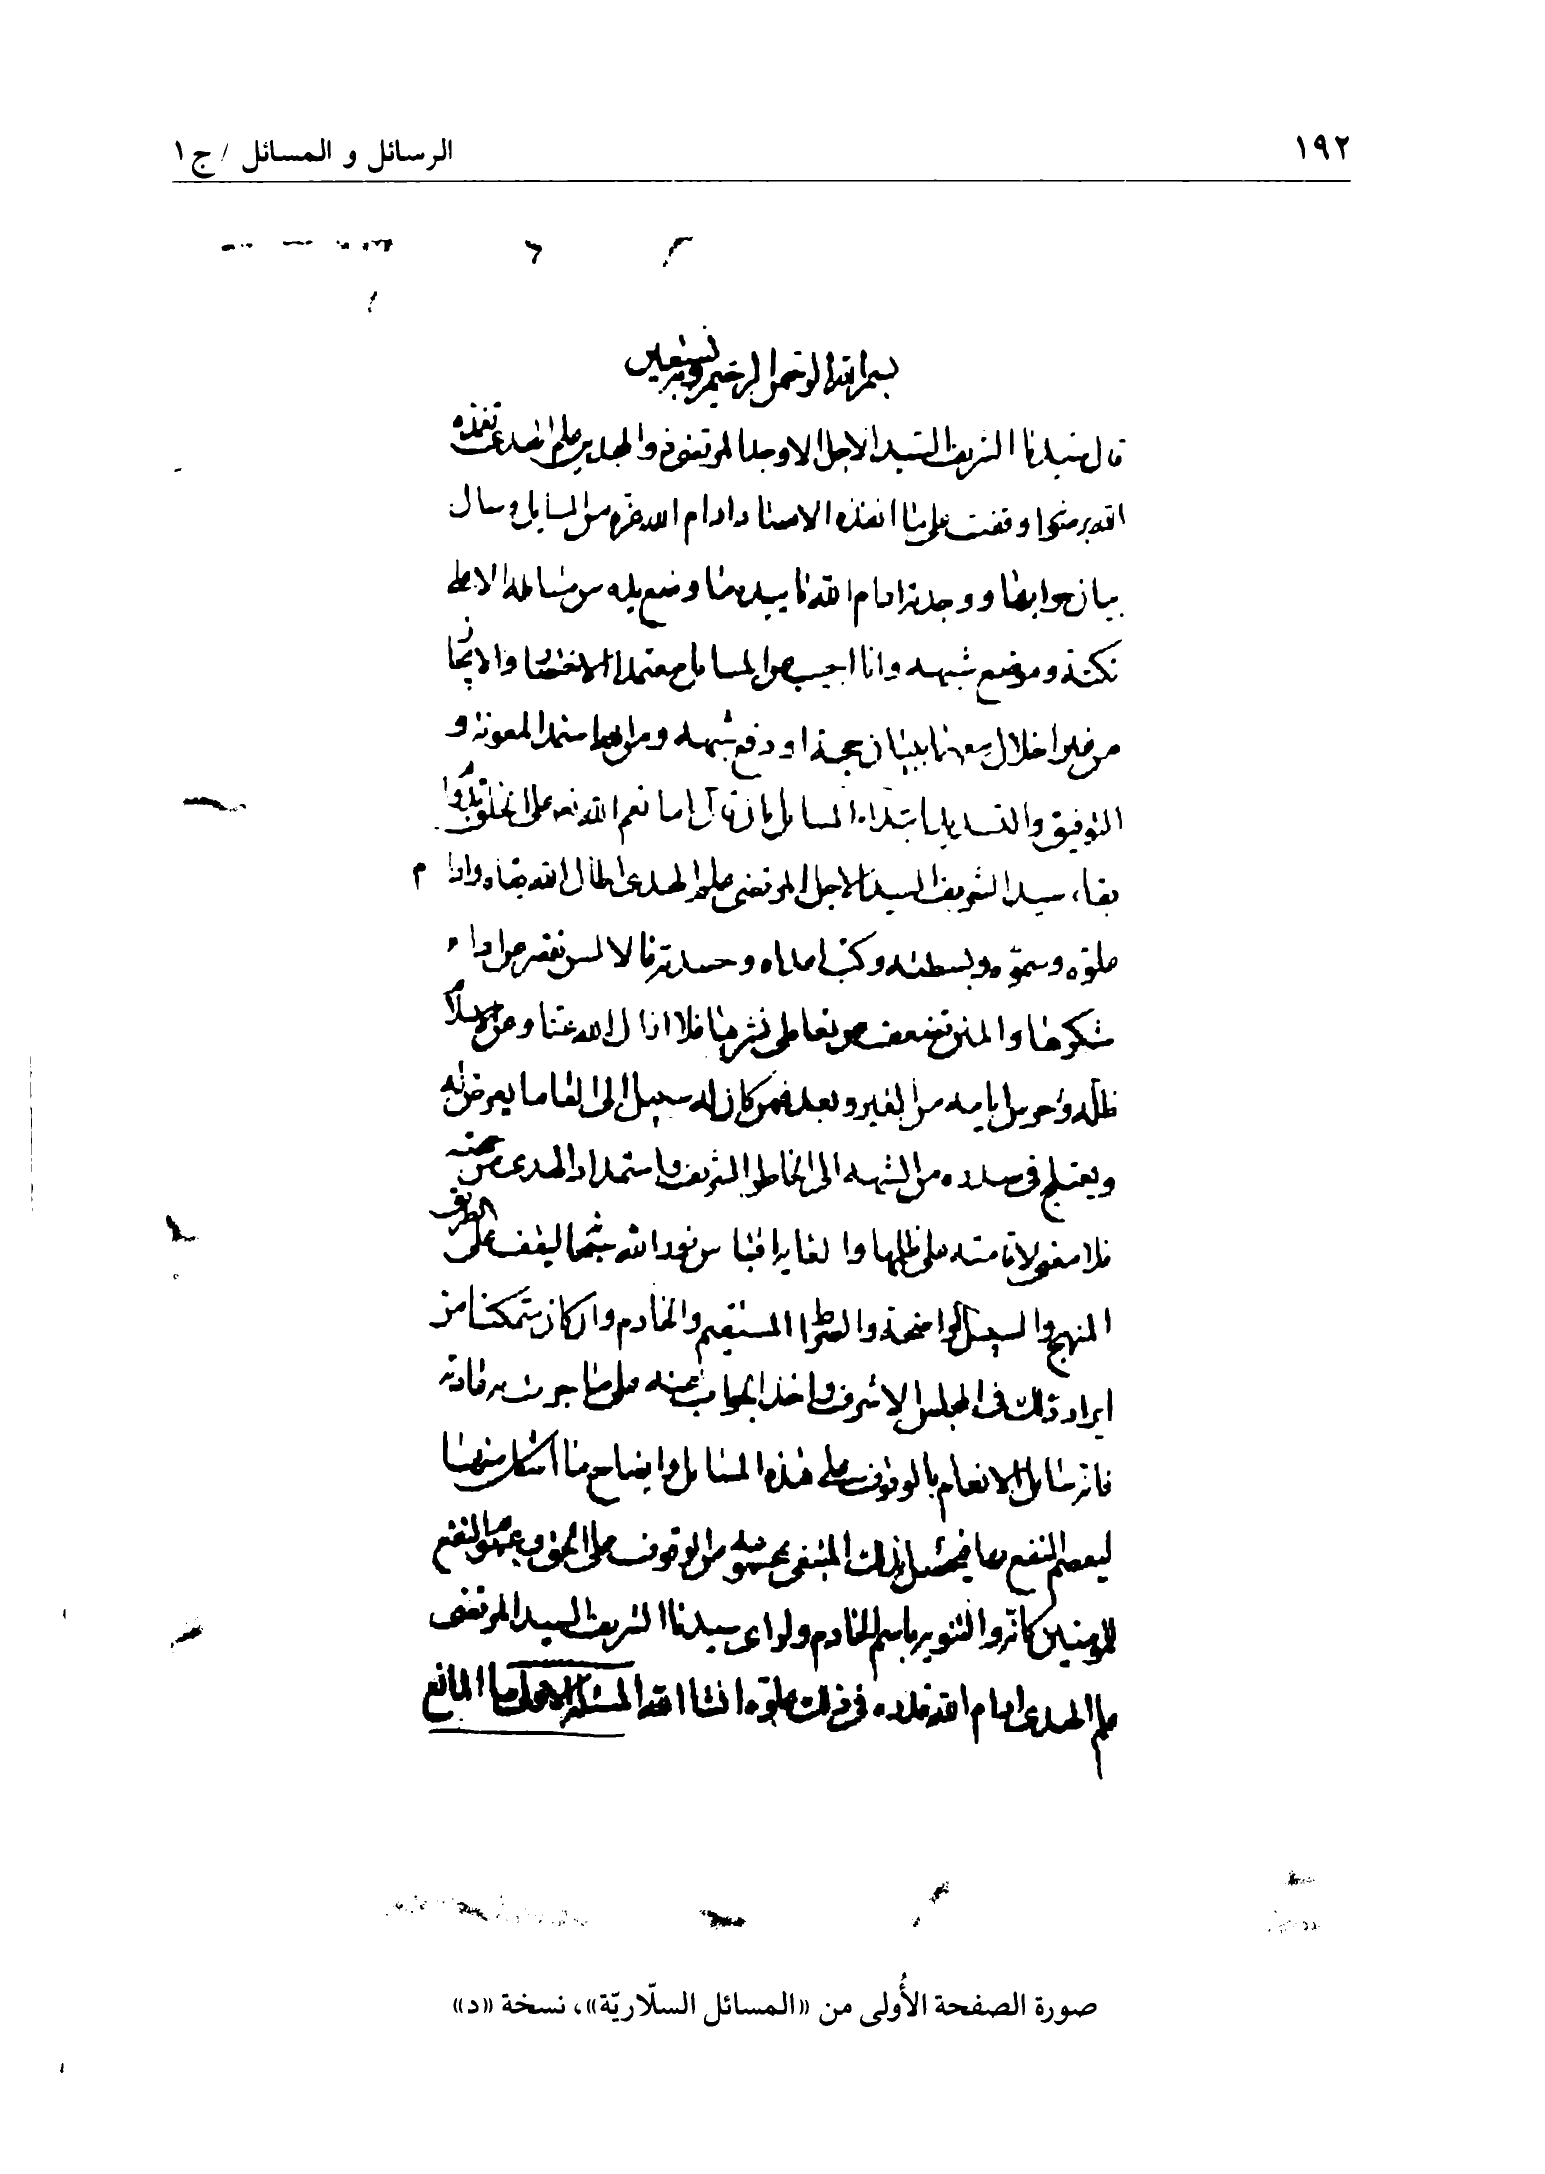 ١٩٢
الرسائل و المسائل / ج ١
بسم الله الرحمن الرحيم وبه نستعين
قال سيدنا الشريف السيد الاجل الاوحد المرتضى ذو المجدين علم الهدى تغمده
الله برضوانه وقفت على ما انفذه الاستاد ادام الله عزه من المسايل وسال
بيان جوابها ووجدته ادام الله تاييده ما وضع يده من مسايله الا على
نكتة وموضع شبهه وانا اجيب عن المسايل معتمدا الاختصار والايجاز
من غير اخلال معهما ببيان حجة او دفع شبهه ومن الله استمد المعونة و
التوفيق والتسديد ابتداء المسايل بان قال اما نعم الله تعه على الخلق
بقاء سيدنا الشريف السيد الاجل المرتضى علم الهدى اطال الله بقاه وادام
علوه وسموه وبسطته وكبت اعداه وحسدته فالالسن تقصر عن اداء
شكرها والمنن تضعف عن تعاطى نشرها فلا ازال الله عنا وعن الاسلام
ظله وحرس ايامه من الغير وبعد فمن كان له سبيل الى القا ما يعرض له
ويعتلج فى صدره من الشبه الى الخاطر الشريف واستمداد الهدى من جهته
فلا معنى لاقامته على ظلمها والغاية اقتباس نور الله سبحانه ليقف على الطريق
المنهج والسبيل الواضحة والصراط المستقيم والخادم وان كان متمكنا من
ايراد ذلك فى المجلس الاشرف واخذ الجواب عنه على ما جرت به عادته
فانه سائل الانعام بالوقوف على هذه المسايل وايضاح ما اشكل منها
ليعم النفع بها فيحصل بذلك المبتغى بجمهوره من الوقوف على الحق وعموم النفع
للمومنين كافة والتنويه باسم الخادم ولراى سيدنا الشريف السيد المرتضى
علم الهدى ادام الله قدره فى ذلك علوه انشا الله المسئلة الاولى ما المانع
صورة الصفحة الأُولى من «المسائل السلّاريّة»، نسخة «د»